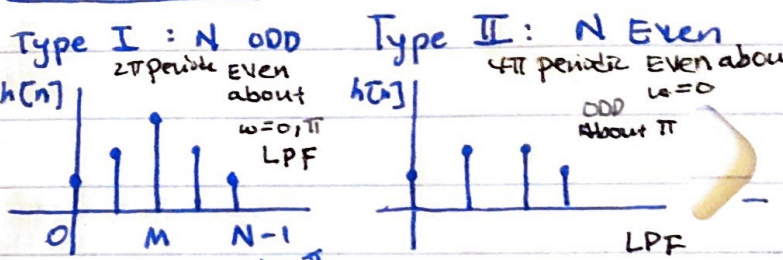 Type I : N ODD
2π periodic Even
about
ω=0, π
LPF
h[n]
0 M N-1
π
Type II : N Even
4π periodic Even abou
ω=0
ODD
About π
h[n]
LPF